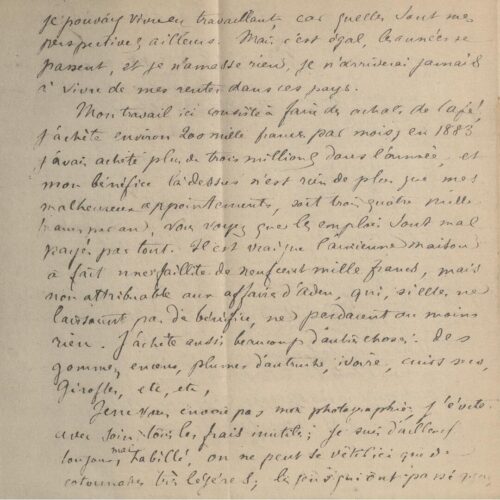 je pouvais vivre en travaillant, car quelles sont mes
perspectives ailleurs. Mais c'est égal, les années se
passent, et je n'amasse rien, je n'arriverai jamais
à vivre de mes rentes dans ces pays.
Mon travail ici consiste à faire des achats de cafés,
j'achète environ 200 mille francs par mois, en 1883
j'avais acheté plus de trois millions dans l'année, et
mon bénéfice là dessus n'est rien de plus que mes
malheureux appointements, soit trois quatre mille
francs par an, vous voyez que les emplois sont mal
payés partout. Il est vrai que l'ancienne maison
a fait une faillite de neuf cent mille francs, mais
non attribuable aux affaires d'Aden, qui, si elles ne
laissaient pas de bénéfice, ne perdaient au moins
rien. J'achète aussi beaucoup d'autres choses: des
gommes, encens, plumes d'autruche, ivoire, cuirs secs,
Girofles, etc, etc,
Je ne vous envoie pas ma photographie; j'évite
avec soin tous les frais inutiles; je suis d'ailleurs
toujours mal habillé, on ne peut se vêtir ici que de
cotonnades très légères; les gens qui ont passé